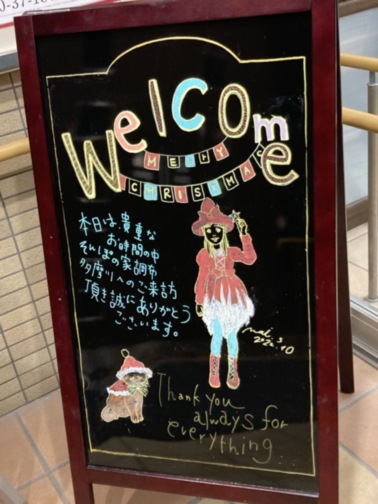 Welcome
MERRY
CHRISTMAS
本日は貴重な
お時間の中
そんぽの家調布
多摩川へのご来訪
頂き誠にありがとう
ございます。
Thank you
always for
everything